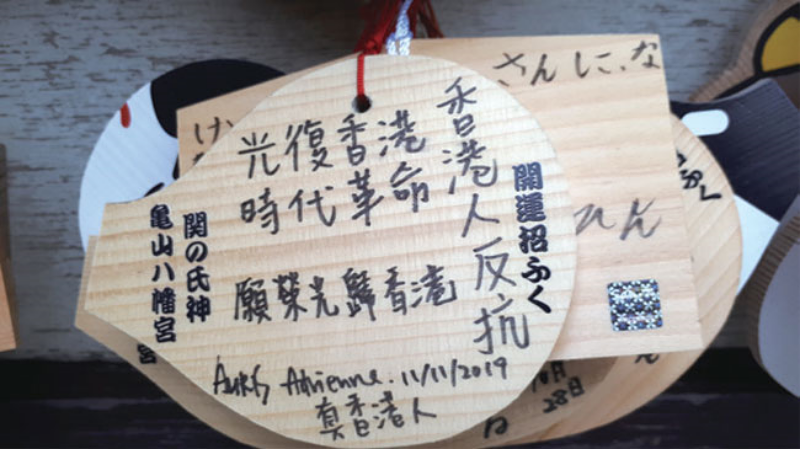 香港人反抗
光復香港
時代革命
願榮光歸香港
Adrienne. 11/11/2019
真香港人
開運招ふく
関の氏神
亀山八幡宮
さんに、な
け
ひん
ふく
10月
28日
宮